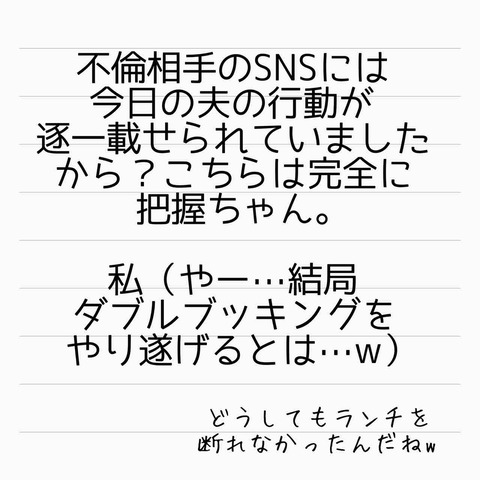 不倫相手のSNSには
今日の夫の行動が
逐一載せられていました
から？こちらは完全に
把握ちゃん。
私（やー…結局
ダブルブッキングを
やり遂げるとは…w）
どうしてもランチを
断れなかったんだねw